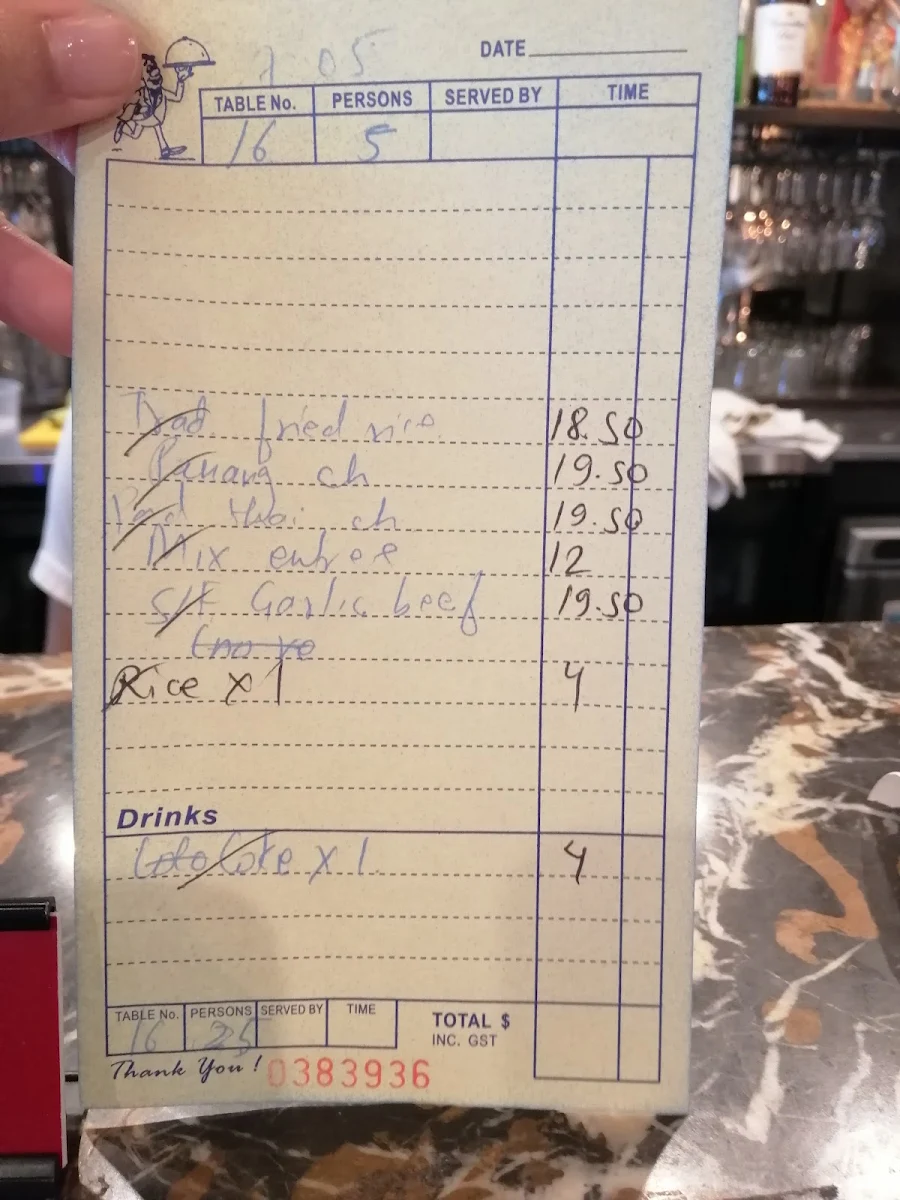 7 05
DATE
TABLE No. PERSONS SERVED BY TIME
16 5
Trad. fried rice 18.50
Panang ch 19.50
Pad thai ch 19.50
Mix entree 12
S/F Garlic beef 19.50
(no
Rice x 1 4
Drinks
Coke x 1 4
TABLE No. PERSONS SERVED BY TIME TOTAL $
16 25 INC. GST
Thank You! 0383936